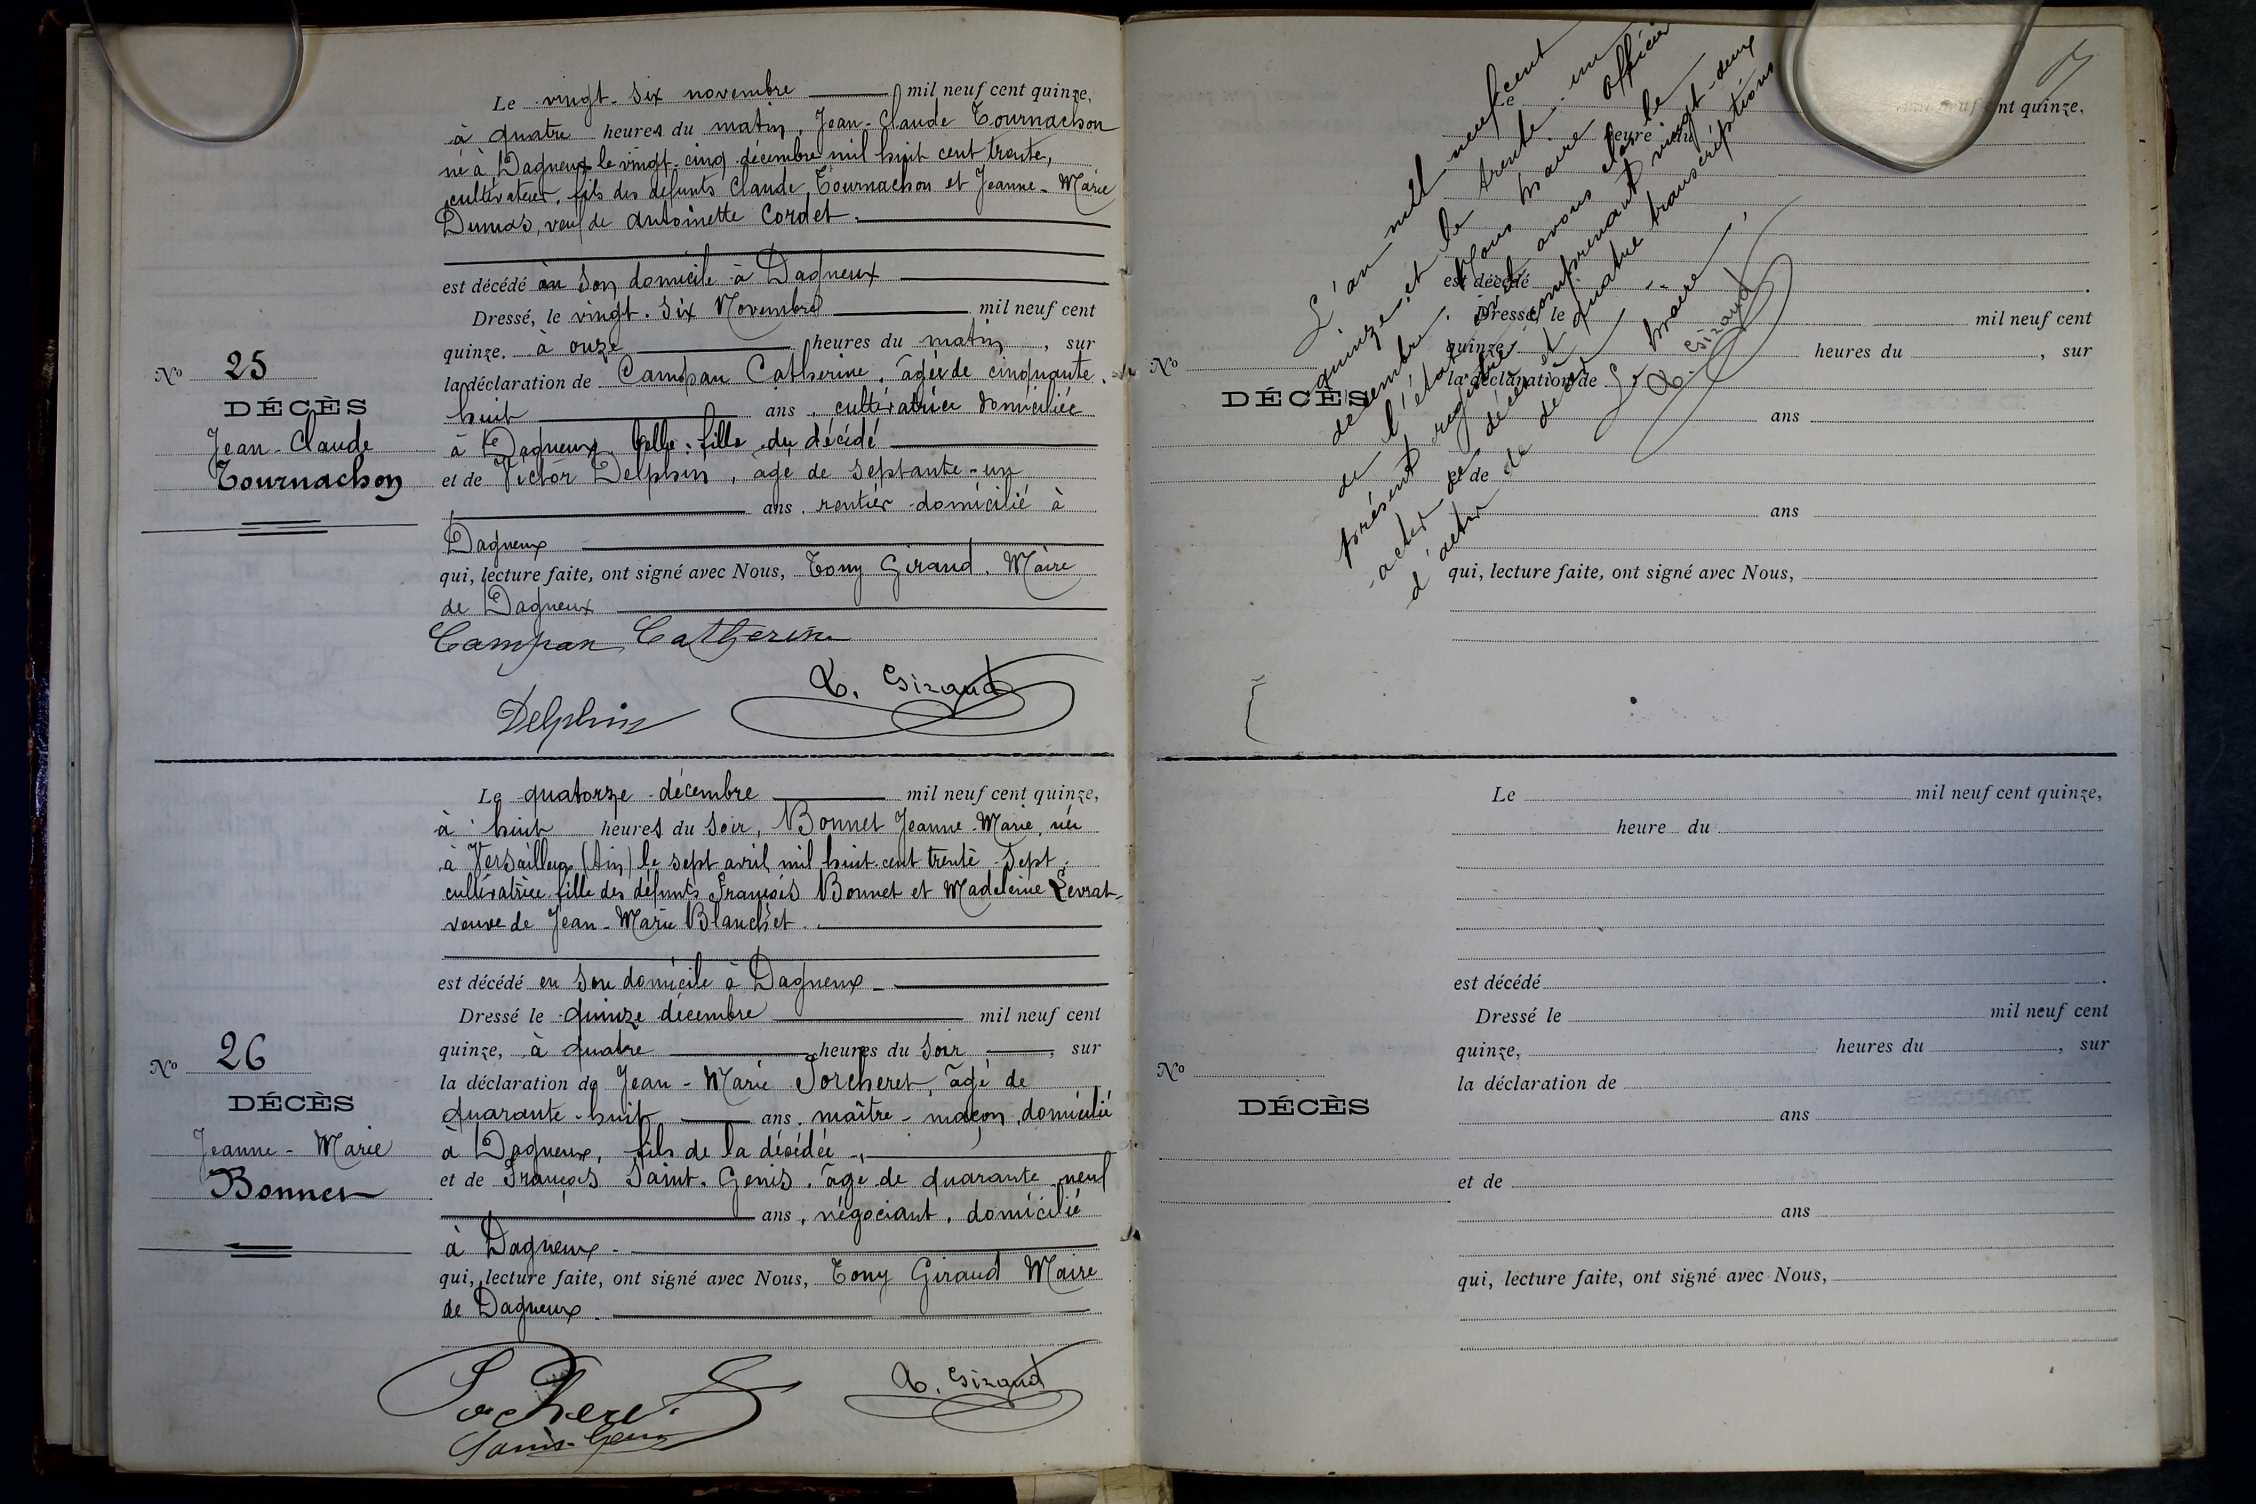 Le vingt-six novembre mil neuf cent quinze,
à quatre heures du matin, Jean-Claude Tournachon
né à Dagneux le vingt-cinq décembre mil huit cent trente,
cultivateur, fils des défunts Claude Tournachon et Jeanne-Marie
Dumas, veuf de Antoinette Cordet.
est décédé en son domicile à Dagneux
Dressé, le vingt-six Novembre mil neuf cent
quinze. à onze heures du matin, sur
la déclaration de Campan Catherine, âgée de cinquante
huit ans, cultivatrice domiciliée
à Dagneux belle-fille du décédé
et de Victor Delphin, âgé de septante-un
ans, rentier domicilié à
Dagneux
qui, lecture faite, ont signé avec Nous, Tony Giraud, Maire
de Dagneux
Campan Catherine
T. Giraud
Delphin
No 25
DÉCÈS
Jean-Claude
Tournachon
Le quatorze décembre mil neuf cent quinze,
à huit heures du soir, Bonnet Jeanne-Marie, née
à Versailleux (Ain) le sept avril mil huit cent trente-sept,
cultivatrice fille des défunts François Bonnet et Madeleine Levrat
veuve de Jean-Marie Blanchet
est décédé en son domicile à Dagneux
Dressé le quinze décembre mil neuf cent
quinze, à quatre heures du soir, sur
la déclaration de Jean-Marie Porcheret, âgé de
quarante-huit ans, maître-maçon, domicilié
à Dagneux, fils de la décédée,
et de François Saint-Genis, âgé de quarante neuf
ans, négociant, domicilié
à Dagneux
qui, lecture faite, ont signé avec Nous, Tony Giraud Maire
de Dagneux
Porcheret
T. Giraud
No 26
DÉCÈS
Jeanne-Marie
Bonnet
L'an mil neuf cent
quinze, et le trente-un
décembre, Nous Maire officier
de l'état civil avons clos le
présent registre comprenant vingt-deux
actes de décès et quatre transcriptions
d'actes de décès
Le Maire,
T. Giraud
Le nt quinze.
heure du
est décédé
Dressé, le mil neuf cent
quinze, heures du , sur
la déclaration de
ans
et de
ans
qui, lecture faite, ont signé avec Nous,
No
DÉCÈS
Le mil neuf cent quinze,
heure du
est décédé
Dressé le mil neuf cent
quinze, heures du , sur
la déclaration de
ans
et de
ans
qui, lecture faite, ont signé avec Nous,
No
DÉCÈS